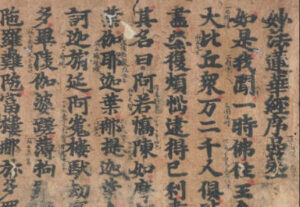 妙法蓮華經序品苐
如是我聞一時佛住王舍
大比丘衆万二千人俱
盡无復煩惱逮得己利
其名曰阿若憍陳如摩
葉伽耶迦葉那提迦葉
訶迦旃延阿㝹樓馱劫
多畢陵伽婆蹉薄拘
陁羅難陁富樓那弥多羅